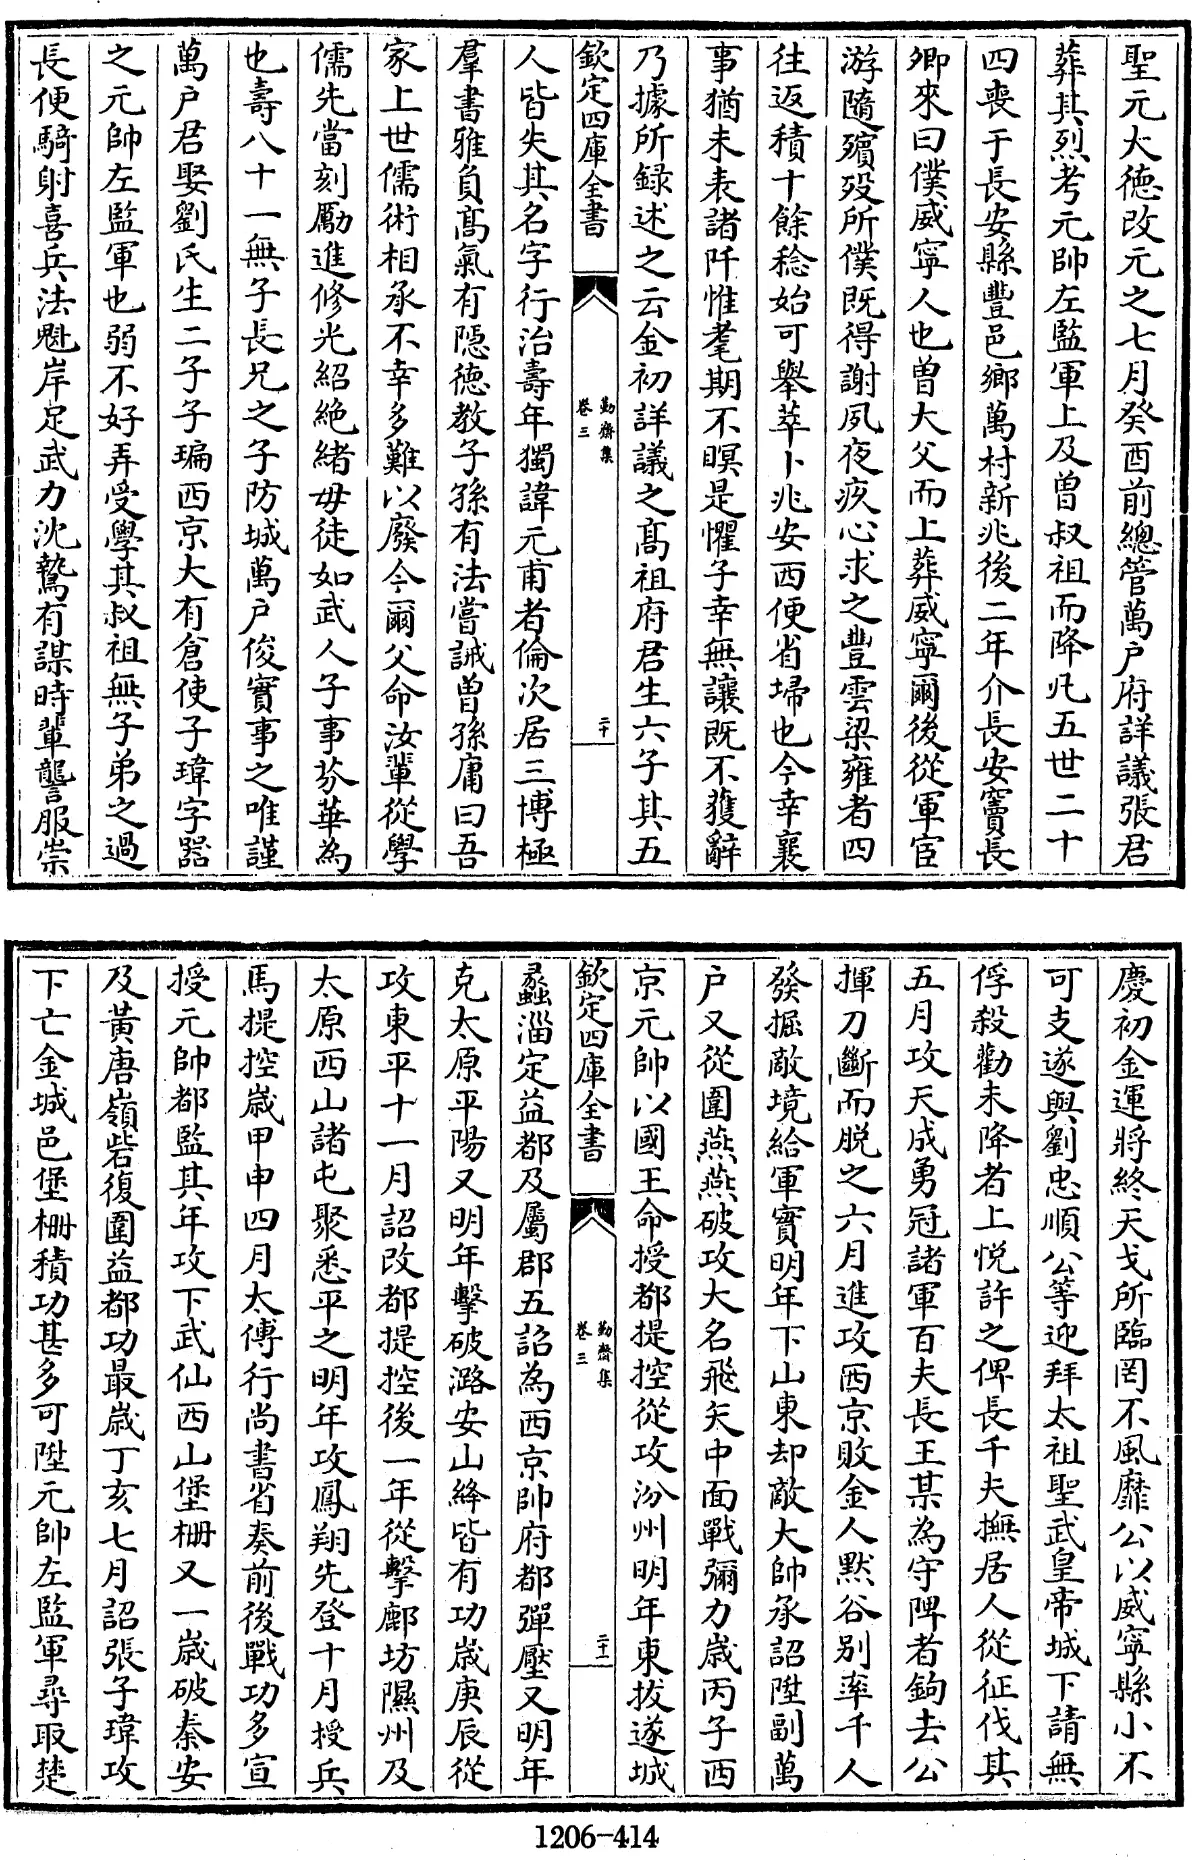 聖元大徳改元之七月癸酉前總管萬户府詳議張君
葬其烈考元帥左監軍上及曽叔祖而降凡五世二十
四喪于長安縣豐邑鄉萬村新兆後二年介長安竇長
卿來曰僕威寧人也曽大父而上葬威寧爾後從軍宦
游隨殯殁所僕既得謝夙夜疚心求之豐雲梁雍者四
往返積十餘稔始可舉萃卜兆安西便省埽也今幸襄
事猶未表諸阡惟耄期不暝是懼子幸無讓既不獲辭
乃據所録述之云金初詳議之髙祖府君生六子其五
欽定四庫全書
勤齋集
卷三
二十
人皆失其名字行治壽年獨諱元甫者倫次居三博極
羣書雅負髙氣有隠徳教子孫有法嘗誡曽孫庸曰吾
家上世儒術相承不幸多難以廢今爾父命汝輩從學
儒先當刻勵進修光紹絶緒毋徒如武人子事芬華為
也壽八十一無子長兄之子防城萬户俊實事之唯謹
萬户君娶劉氏生二子子瑞西京大有倉使子瑋字器
之元帥左監軍也弱不好弄受學其叔祖無子弟之過
長便騎射喜兵法魁岸足武力沈鷙有謀時輩讋服崇
慶初金運將終天戈所臨罔不風靡公以威寧縣小不
可支遂與劉忠順公等迎拜太祖聖武皇帝城下請無
俘殺勸未降者上悦許之俾長千夫撫居人從征伐其
五月攻天成勇冠諸軍百夫長王某為守陴者鉤去公
揮刀斷而脱之六月進攻西京敗金人默谷别率千人
發掘敵境給軍實明年下山東却敵大帥承詔陞副萬
户又從圍燕燕破攻大名飛矢中面戰彌力歳丙子西
京元帥以國王命授都提控從攻汾州明年東拔遂城
欽定四庫全書
勤齋集
卷三
二十一
蠡淄定益都及屬郡五詔為西京帥府都彈壓又明年
克太原平陽又明年擊破潞安山絳皆有功歳庚辰從
攻東平十一月詔改都提控後一年從擊鄜坊隰州及
太原西山諸屯聚悉平之明年攻鳳翔先登十月授兵
馬提控歳甲申四月太傅行尚書省奏前後戰功多宣
授元帥都監其年攻下武仙西山堡栅又一歳破秦安
及黃唐嶺砦復圍益都功最歳丁亥七月詔張子瑋攻
下亡金城邑堡栅積功甚多可陞元帥左監軍尋取楚
1206-414